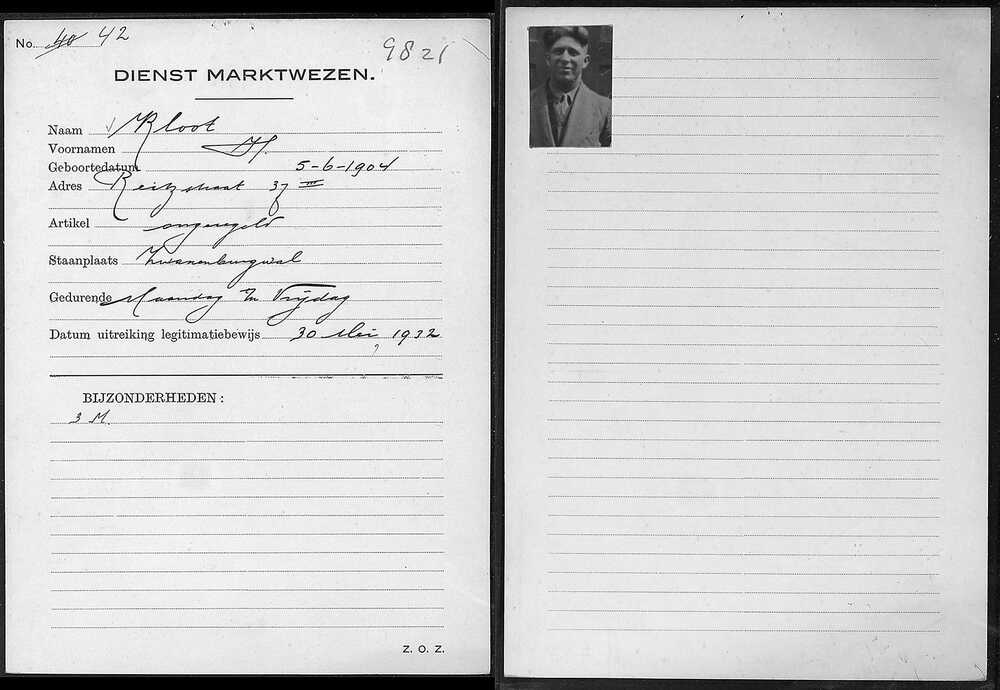 No. 40 42
9821
DIENST MARKTWEZEN.
Naam Kloot
Voornamen H.
Geboortedatum 5-6-1904
Adres Reitzstraat 37 III
Artikel ongeregeld
Staanplaats Zwanenburgwal
Gedurende Maandag t/m Vrijdag
Datum uitreiking legitimatiebewijs 30 Mei 1932
BIJZONDERHEDEN:
3 M.
Z. O. Z.